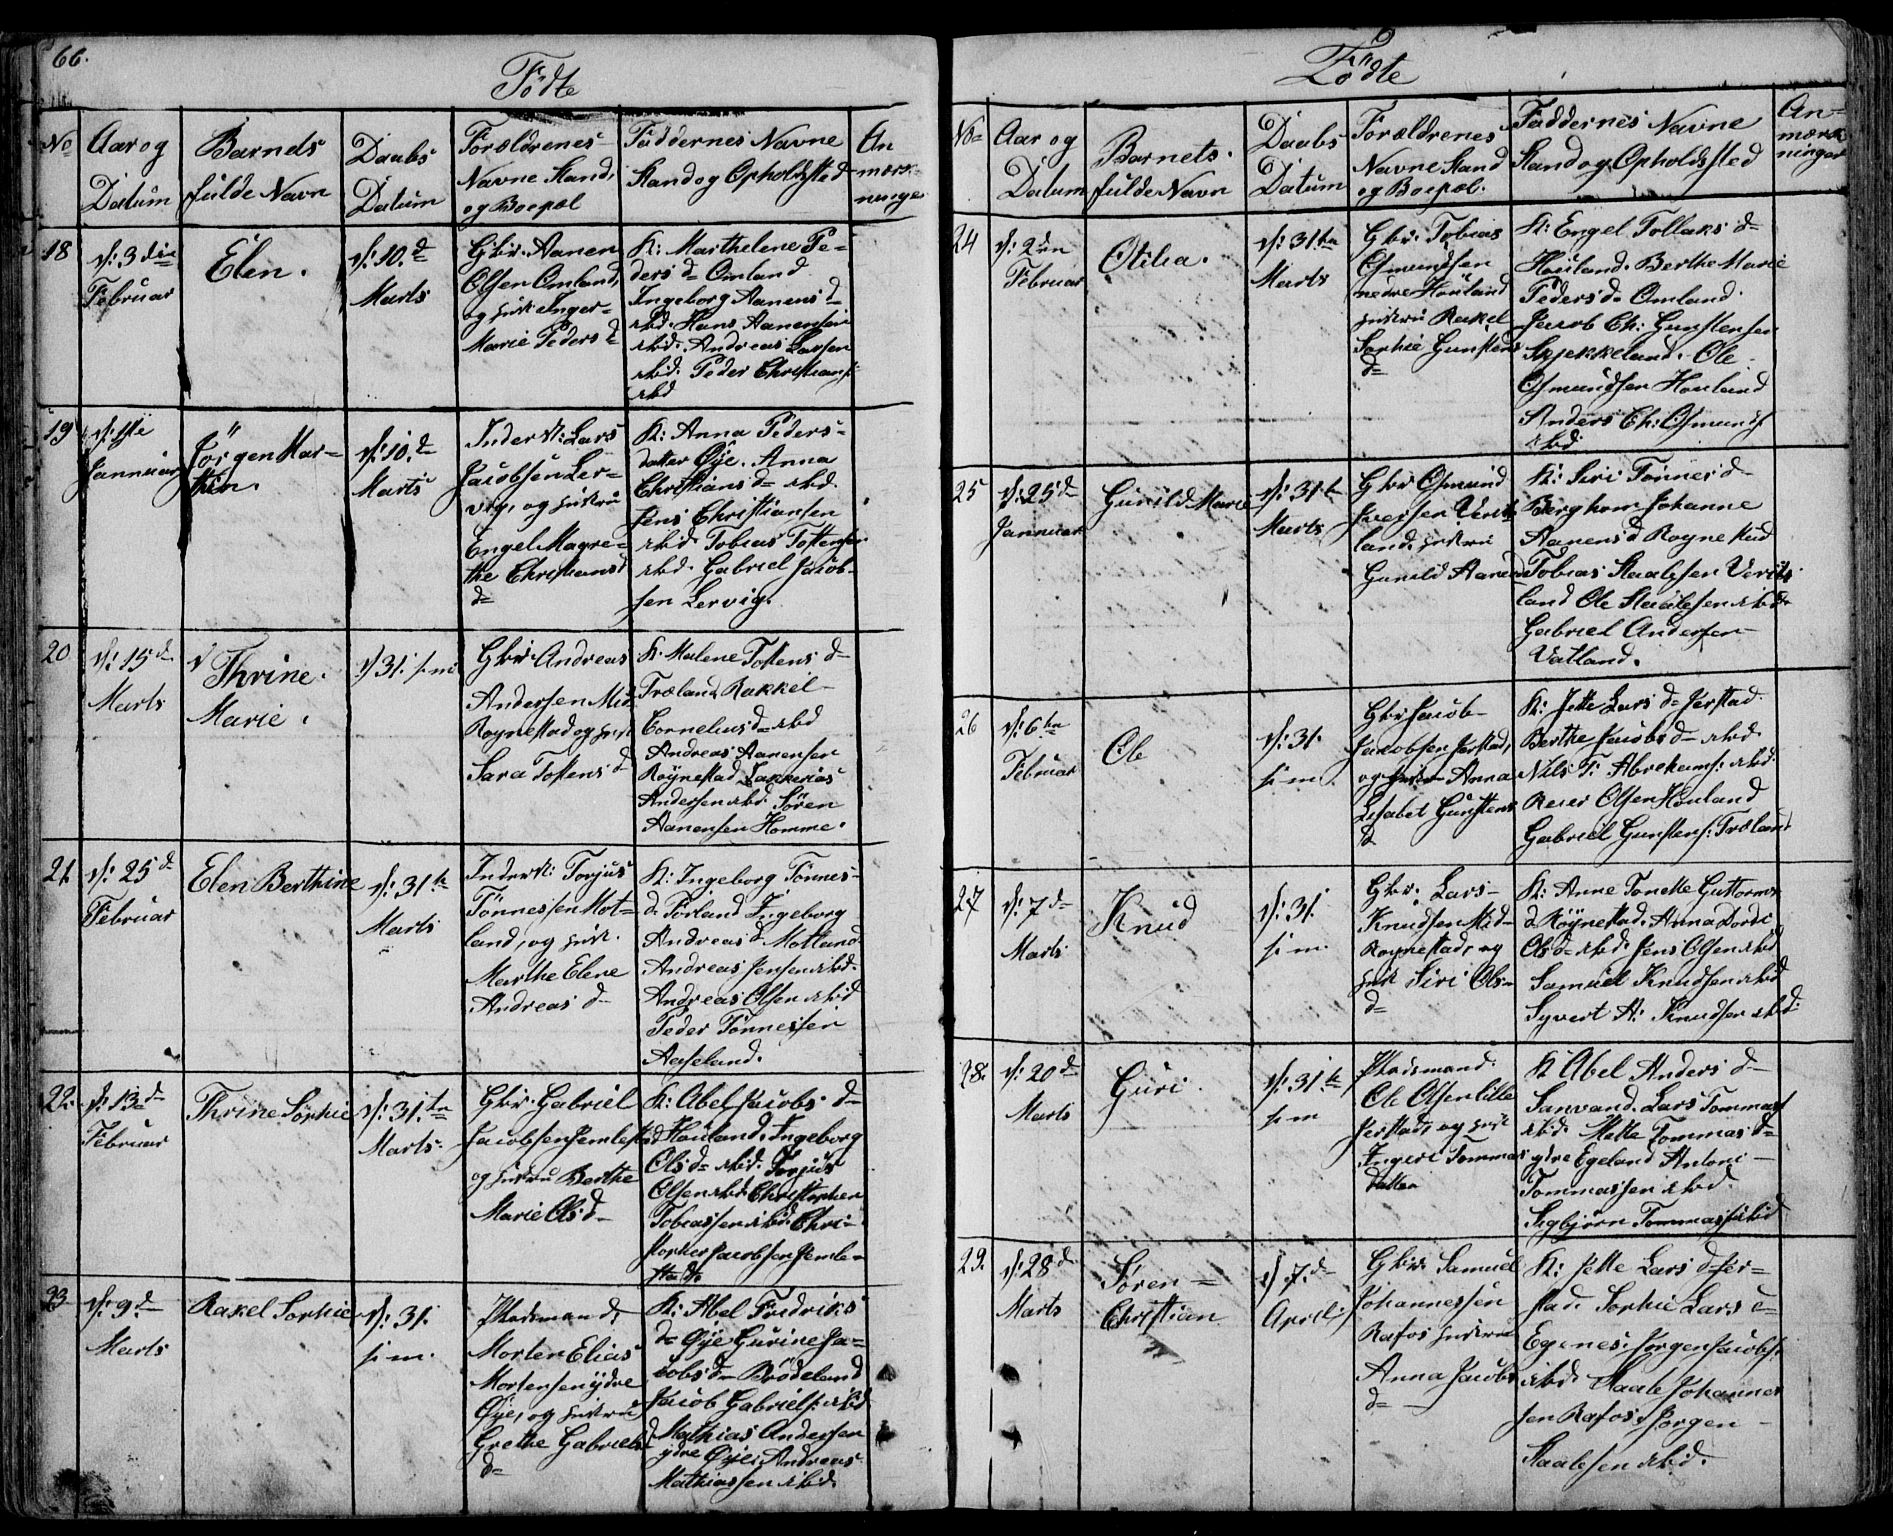 66.
Födte
No
Aar og
Datum
Barnets
fulde Navn
Daabs
Datum
Forældrenes
Navne Stand,
og Boepæl
Faddernes Navne
Stand og Opholdsted
An
mærk
ninger
18
d: 3die
Februar
Elen.
d: 10.d
Marts
Gbr: Aanen
Olsen Omland,
og hust: Inger
Marie Peders d
K: Marthelene Pe-
ders d= Omland
Ingeborg Aanens d=
ibid. Hans Aanensen
ibid. Andreas Larsen
ibid. Peder Christians:
ibid
19
d: 1ste
Januar
Jörgen Mar-
thin.
d: 10.d
Marts
Inderst: Lars
Jacobsen Ler-
vig, og hustru
Engel Magre-
the Christians
d=
K: Anna Peders-
datter Øÿe. Anna
Christians d= ibid.
Jens Christiansen
ibid. Tobias Tostensen
ibid. Gabriel Jacob-
sen Lervig.
20
d: 15d
Marts
Thrine.
Marie.
d 31. s. m
Gbr: Andreas
Andersen Mid
Røynestad og hust
Sara Tostens d
K: Malene Tostens d=
Træland, Rakkel
Cornelius d= ibid
Andreas Aanensen
Röynestad, Zakkerias
Andersen ibid. Sören
Aanensen Homme.
21
d: 25d
Februar
Elen Berthine
d: 31te
Marts
Inderst: Torjus
Tönnessen Mot-
land, og hust.
Marthe Elene
Andreas d=
K: Ingeborg Tönnes-
d. Förland, Ingeborg
Andreas d. Motland
Andreas Jensen ibid.
Andreas Olsen ibid
Peder Tönnessen
Aaseland.
22.
d: 13d
Februar
Thrine Sophie
d: 31.te
Marts.
Gbr: Gabriel
Jacobsen Jemlestad
og hustru Berthe
Marie Ols d=
K: Abel Jacobs d=
Houland. Ingeborg
Ols d= ibid. Torjus
Olsen ibid Christopher
Tobiassen ibid. Chri-
stopher Jacobsen Jemle-
stad.
23
d: 9.d
Marts
Rakel Sophie
d: 31.
s: m.
Pladsmand
Morten Elias
Mortensen ÿdre
Øÿe, og hustru
Grethe Gabriels
d=
K: Abel Fredriks
d= Øÿe Gurine Ja-
cobs d= Brödeland
Jacob Gabriels: ibid
Mathias Andersen
ydre Øÿe, Andreas
Mathiassen ibid.
Födte
No
Aar og
Datum
Barnets.
fulde Navn
Daabs
Datum
Forældrenes
Navne Stand
og Boepæl.
Faddernes Navne
Stand og Opholdsted
An-
mærk
ninger
24
d: 2den
Februar
Otilia.
d: 31te
Marts
Gbr: Tobias
Osmundsen
nedre Houland
hustru Rakel
Sophie Gunstens
d=
K: Engel Tollaks d=
Houland. Berthe Marie
Peders d= Omland.
Jacob Ch: Gunstensen
Skjekkeland. Ole
Osmundsen Houland
Anders Ch: Osmunds
ibid
25
d: 25d
Januar
Gunild Marie
d: 31te
Marts
Gbr Osmund
Iversen Verits
land, hustru
Gunild Aanens
K: Siri Tönnes d=
Berghom Johanne
Aanens d Røyne Kud
Tobias Staalesen Verits-
land Ole Staalesen ibid.
Gabriel Andersen
Vatland.
26
d: 6te
Februar
Ole
d: 31.
s: m.
Gbr Jacob
Jacobsen Jerstad,
og hustru Anna
Lisabet Gunstens
d
K: Jette Lars d= Jerstad.
Berthe Jacobs d= ibid.
Nils T: Abrehams: ibid.
Reier Olsen Houland
Gabriel Gunstens: Træland
27
d: 7d
Marts
Knud
d: 31.
s: m.
Gbr: Lars
Knudsen Mid-
Røynestad, og
hust Siri Ols-
d=
K: Anne Tonette Guttorms
d. Röÿnestad. Anna Dorte
Ols d= ibid. Jens Olsen ibid
Samuel Knudsen ibid
Syvert A: Knudsen ibid.
28.
d: 20d
Marts
Guri.
d: 31te
s: m
Pladsmand.
Ole Olsen lille
Jerstad, og hust
Ingeri Tommas
datter
K Abel Anders d=
Sanvand. Lars Tommass
ibid. Mette Tommas d=
ydre Egeland Antoni
Tommassen ibid.
Sigbjörn Tommassen ibid
29.
d: 28d
Marts
Sören
Christian
d 7.d
April
Gbr: Samuel
Johannessen
Rafos hustru
Anna Jacobs
d=
K: Jette Lars d= Jer-
stad. Sophie Lars d=
Egenes. Jörgen Jacobs:
ibid. Staale Johannes
sen Rafos. Jörgen
Staalesen ibid.